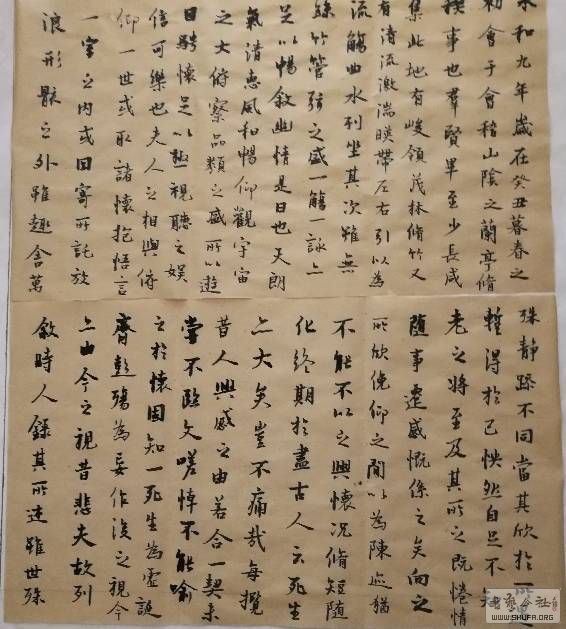 永和九年歲在癸丑暮春之
初會于會稽山陰之蘭亭脩
稧事也羣賢畢至少長咸
集此地有峻領茂林脩竹又
有清流激湍暎帶左右引以為
流觴曲水列坐其次雖無
絲竹管弦之盛一觴一詠亦
足以暢敘幽情是日也天朗
氣清惠風和暢仰觀宇宙
之大俯察品類之盛所以遊
目騁懷足以極視聽之娛
信可樂也夫人之相與俯
仰一世或取諸懷抱悟言
一室之內或因寄所託放
浪形骸之外雖趣舍萬
殊靜躁不同當其欣於
暫得於己怏然自足不
老之將至及其所之既惓情
隨事遷感慨係之矣向之
所欣俛仰之間以為陳迹猶
不能不以之興懷況脩短隨
化終期於盡古人云死生
亦大矣豈不痛哉每攬
昔人興感之由若合一契未
嘗不臨文嗟悼不能喻
之於懷固知一死生為虛誕
齊彭殤為妄作後之視今
亦由今之視昔悲夫故列
敘時人錄其所述雖世殊
WWW.SHUFA.ORG